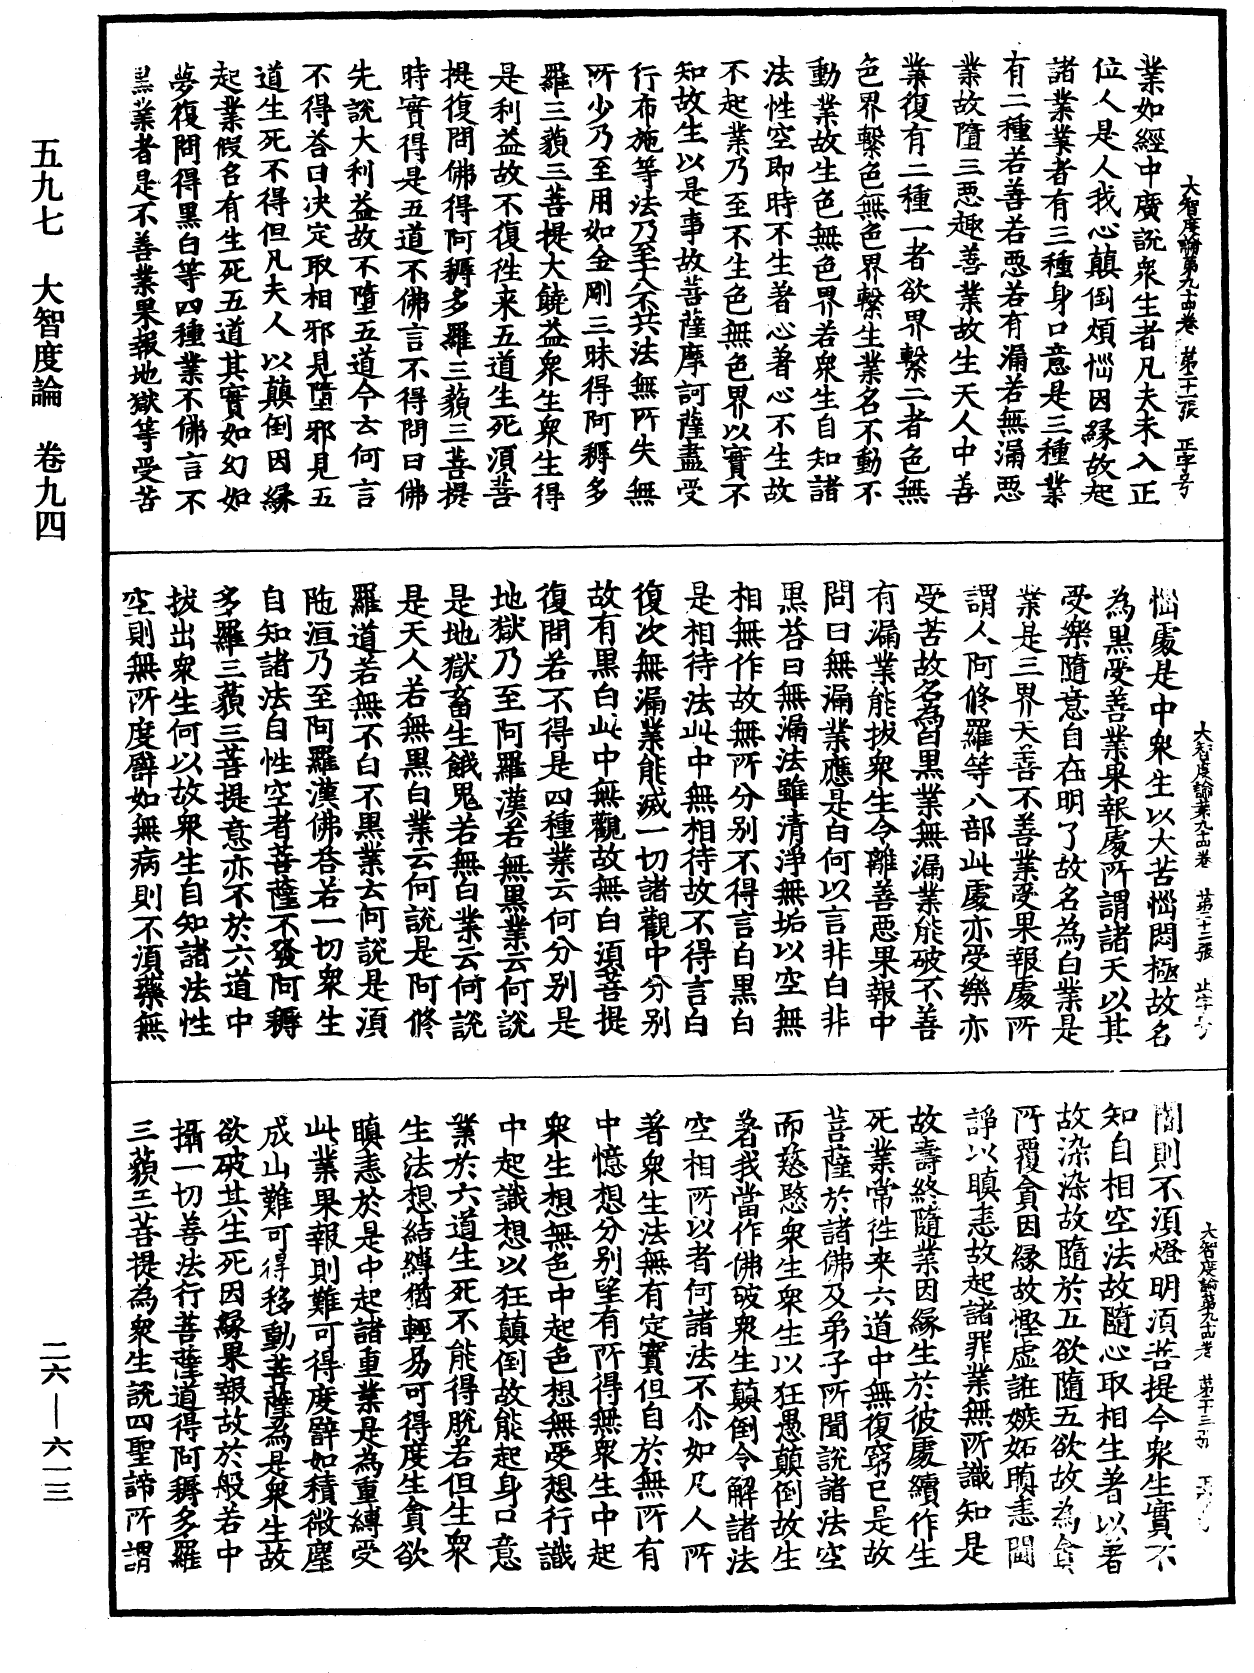 大智度論第九十四卷　第三十一張　正字号
業如經中廣說衆生者凡夫未入正
位人是人我心顛倒煩惱因緣故起
諸業業者有三種身口意是三種業
有二種若善若惡若有漏若無漏惡
業故墮三惡趣善業故生天人中善
業復有二種一者欲界繫二者色無
色界繫色無色界繫生業名不動不
動業故生色無色界若衆生自知諸
法性空即時不生著心著心不生故
不起業乃至不生色無色界以實不
知故生以是事故菩薩摩訶薩盡受
行布施等法乃至十八不共法無所失無
所少乃至用如金剛三昧得阿耨多
羅三藐三菩提大饒益衆生衆生得
是利益故不復往來五道生死須菩
提復問佛得阿耨多羅三藐三菩提
時實得是五道不佛言不得問曰佛
先說大利益故不墮五道今云何言
不得荅曰决定取相邪見墮邪見五
道生死不得但凡夫人以顛倒因緣
起業假名有生死五道其實如幻如
夢復問得黑白等四種業不佛言不
黑業者是不善業果報地獄等受苦
大智度論第九十四卷　第三十二張　正字号
惱處是中衆生以大苦惱悶極故名
為黑受善業果報處所謂諸天以其
受樂隨意自在明了故名為白業是
業是三界天善不善業受果報處所
謂人阿修羅等八部此處亦受樂亦
受苦故名為白黑業無漏業能破不善
有漏業能拔衆生令離善惡果報中
問曰無漏業應是白何以言非白非
黑荅曰無漏法雖清淨無垢以空無
相無作故無所分別不得言白黑白
是相待法此中無相待故不得言白
復次無漏業能滅一切諸觀中分別
故有黑白此中無觀故無白須菩提
復問若不得是四種業云何分別是
地獄乃至阿羅漢若無黑業云何說
是地獄畜生餓鬼若無白業云何說
是天人若無黑白業云何說是阿修
羅道若無不白不黑業云何說是須
陁洹乃至阿羅漢佛荅若一切衆生
自知諸法自性空者菩薩不發阿耨
多羅三藐三菩提意亦不於六道中
拔出衆生何以故衆生自知諸法性
空則無所度譬如無病則不須藥無
大智度論第九十四卷　第三十三張
闇則不須燈明須菩提今衆生實不
知自相空法故隨心取相生著以著
故染染故隨於五欲隨五欲故為貪
所覆貪因緣故慳虛誑嫉妬瞋恚鬪
諍以瞋恚故起諸罪業無所識知是
故壽終隨業因緣生於彼處續作生
死業常往來六道中無復窮已是故
菩薩於諸佛及弟子所聞說諸法空
而慈愍衆生衆生以狂愚顛倒故生
著我當作佛破衆生顛倒令解諸法
空相所以者何諸法不尒如凡人所
著衆生法無有定實但自於無所有
中憶想分別望有所得無衆生中起
衆生想無色中起色想無受想行識
中起識想以狂顛倒故能起身口意
業於六道生死不能得脫若但生衆
生法想結縛猶輕易可得度生貪欲
瞋恚於是中起諸重業是為重縛受
此業果報則難可得度譬如積微塵
成山難可得移動菩薩為是衆生故
欲破其生死因緣果報故於般若中
攝一切善法行菩薩道得阿耨多羅
三藐三菩提為衆生說四聖諦所謂
五九七　大智度論　卷九四
二六—六一三